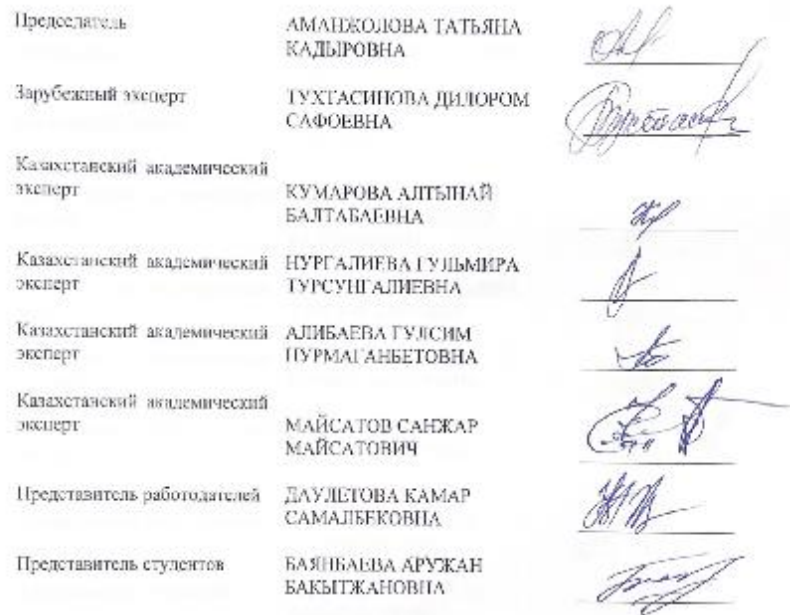 Председатель
АМАНЖОЛОВА ТАТЬЯНА
КАДЫРОВНА
Зарубежный эксперт
ТУХТАСИНОВА ДИЛОРОМ
САФОЕВНА
Казахстанский академический
эксперт
КУМАРОВА АЛТЫНАЙ
БАЛТАБАЕВНА
Казахстанский академический
эксперт
НУРГАЛИЕВА ГУЛЬМИРА
ТУРСУНГАЛИЕВНА
Казахстанский академический
эксперт
АЛИБАЕВА ГУЛСИМ
НУРМАГАНБЕТОВНА
Казахстанский академический
эксперт
МАЙСАТОВ САНЖАР
МАЙСАТОВИЧ
Представитель работодателей
ДАУЛЕТОВА КАМАР
САМАЛБЕКОВНА
Представитель студентов
БАЯНБАЕВА АРУЖАН
БАКЫТЖАНОВНА